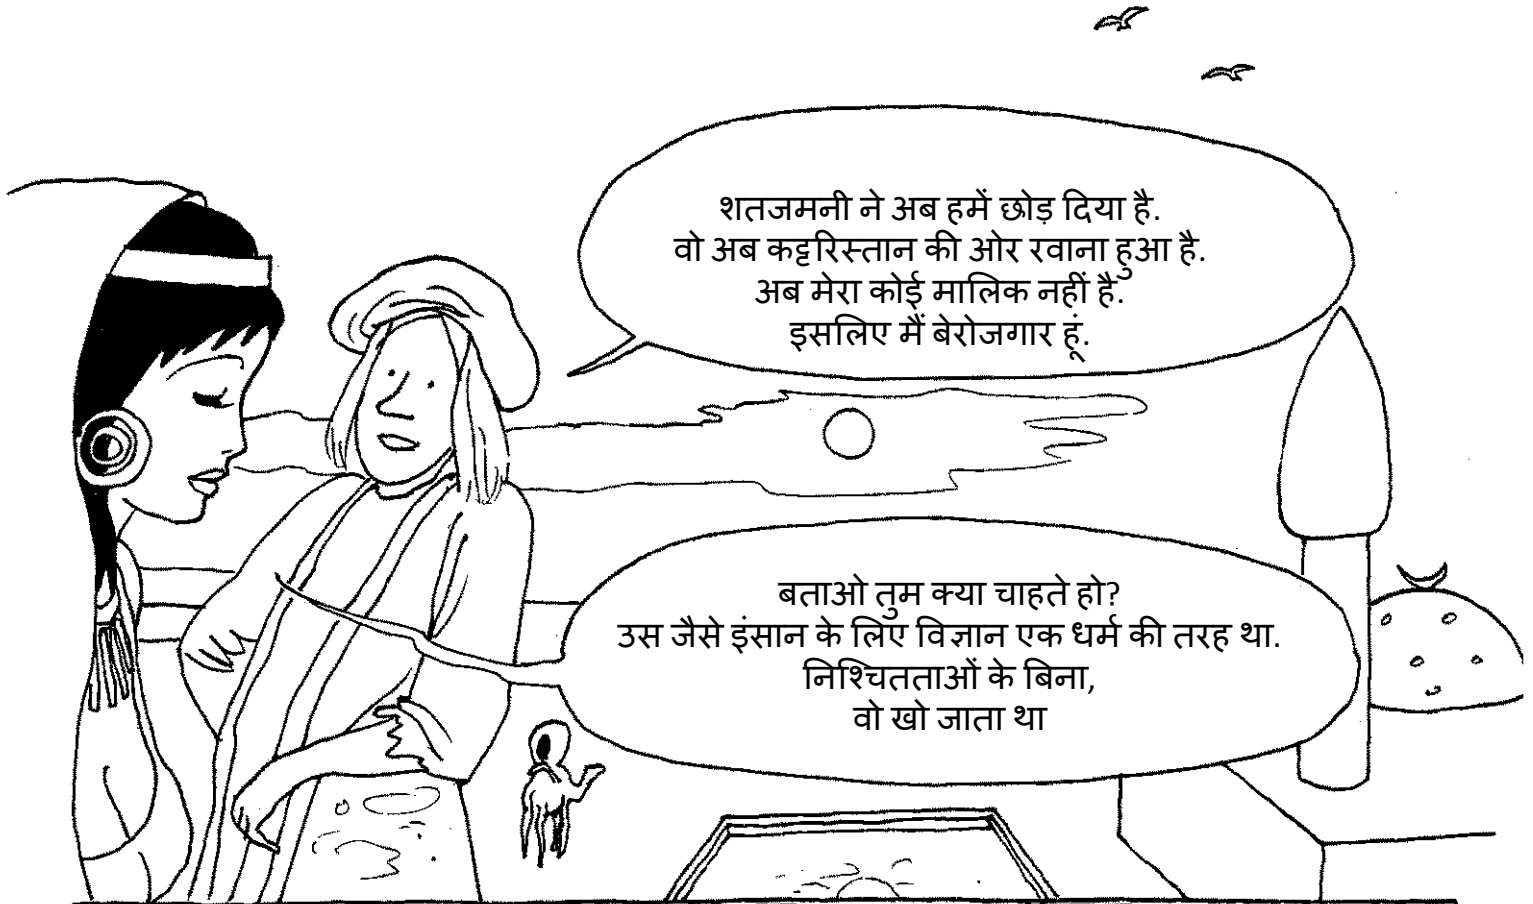 शतजमनी ने अब हमें छोड़ दिया है.
वो अब कट्टरिस्तान की ओर रवाना हुआ है.
अब मेरा कोई मालिक नहीं है.
इसलिए मैं बेरोजगार हूं.
बताओ तुम क्या चाहते हो?
उस जैसे इंसान के लिए विज्ञान एक धर्म की तरह था.
निश्चितताओं के बिना,
वो खो जाता था